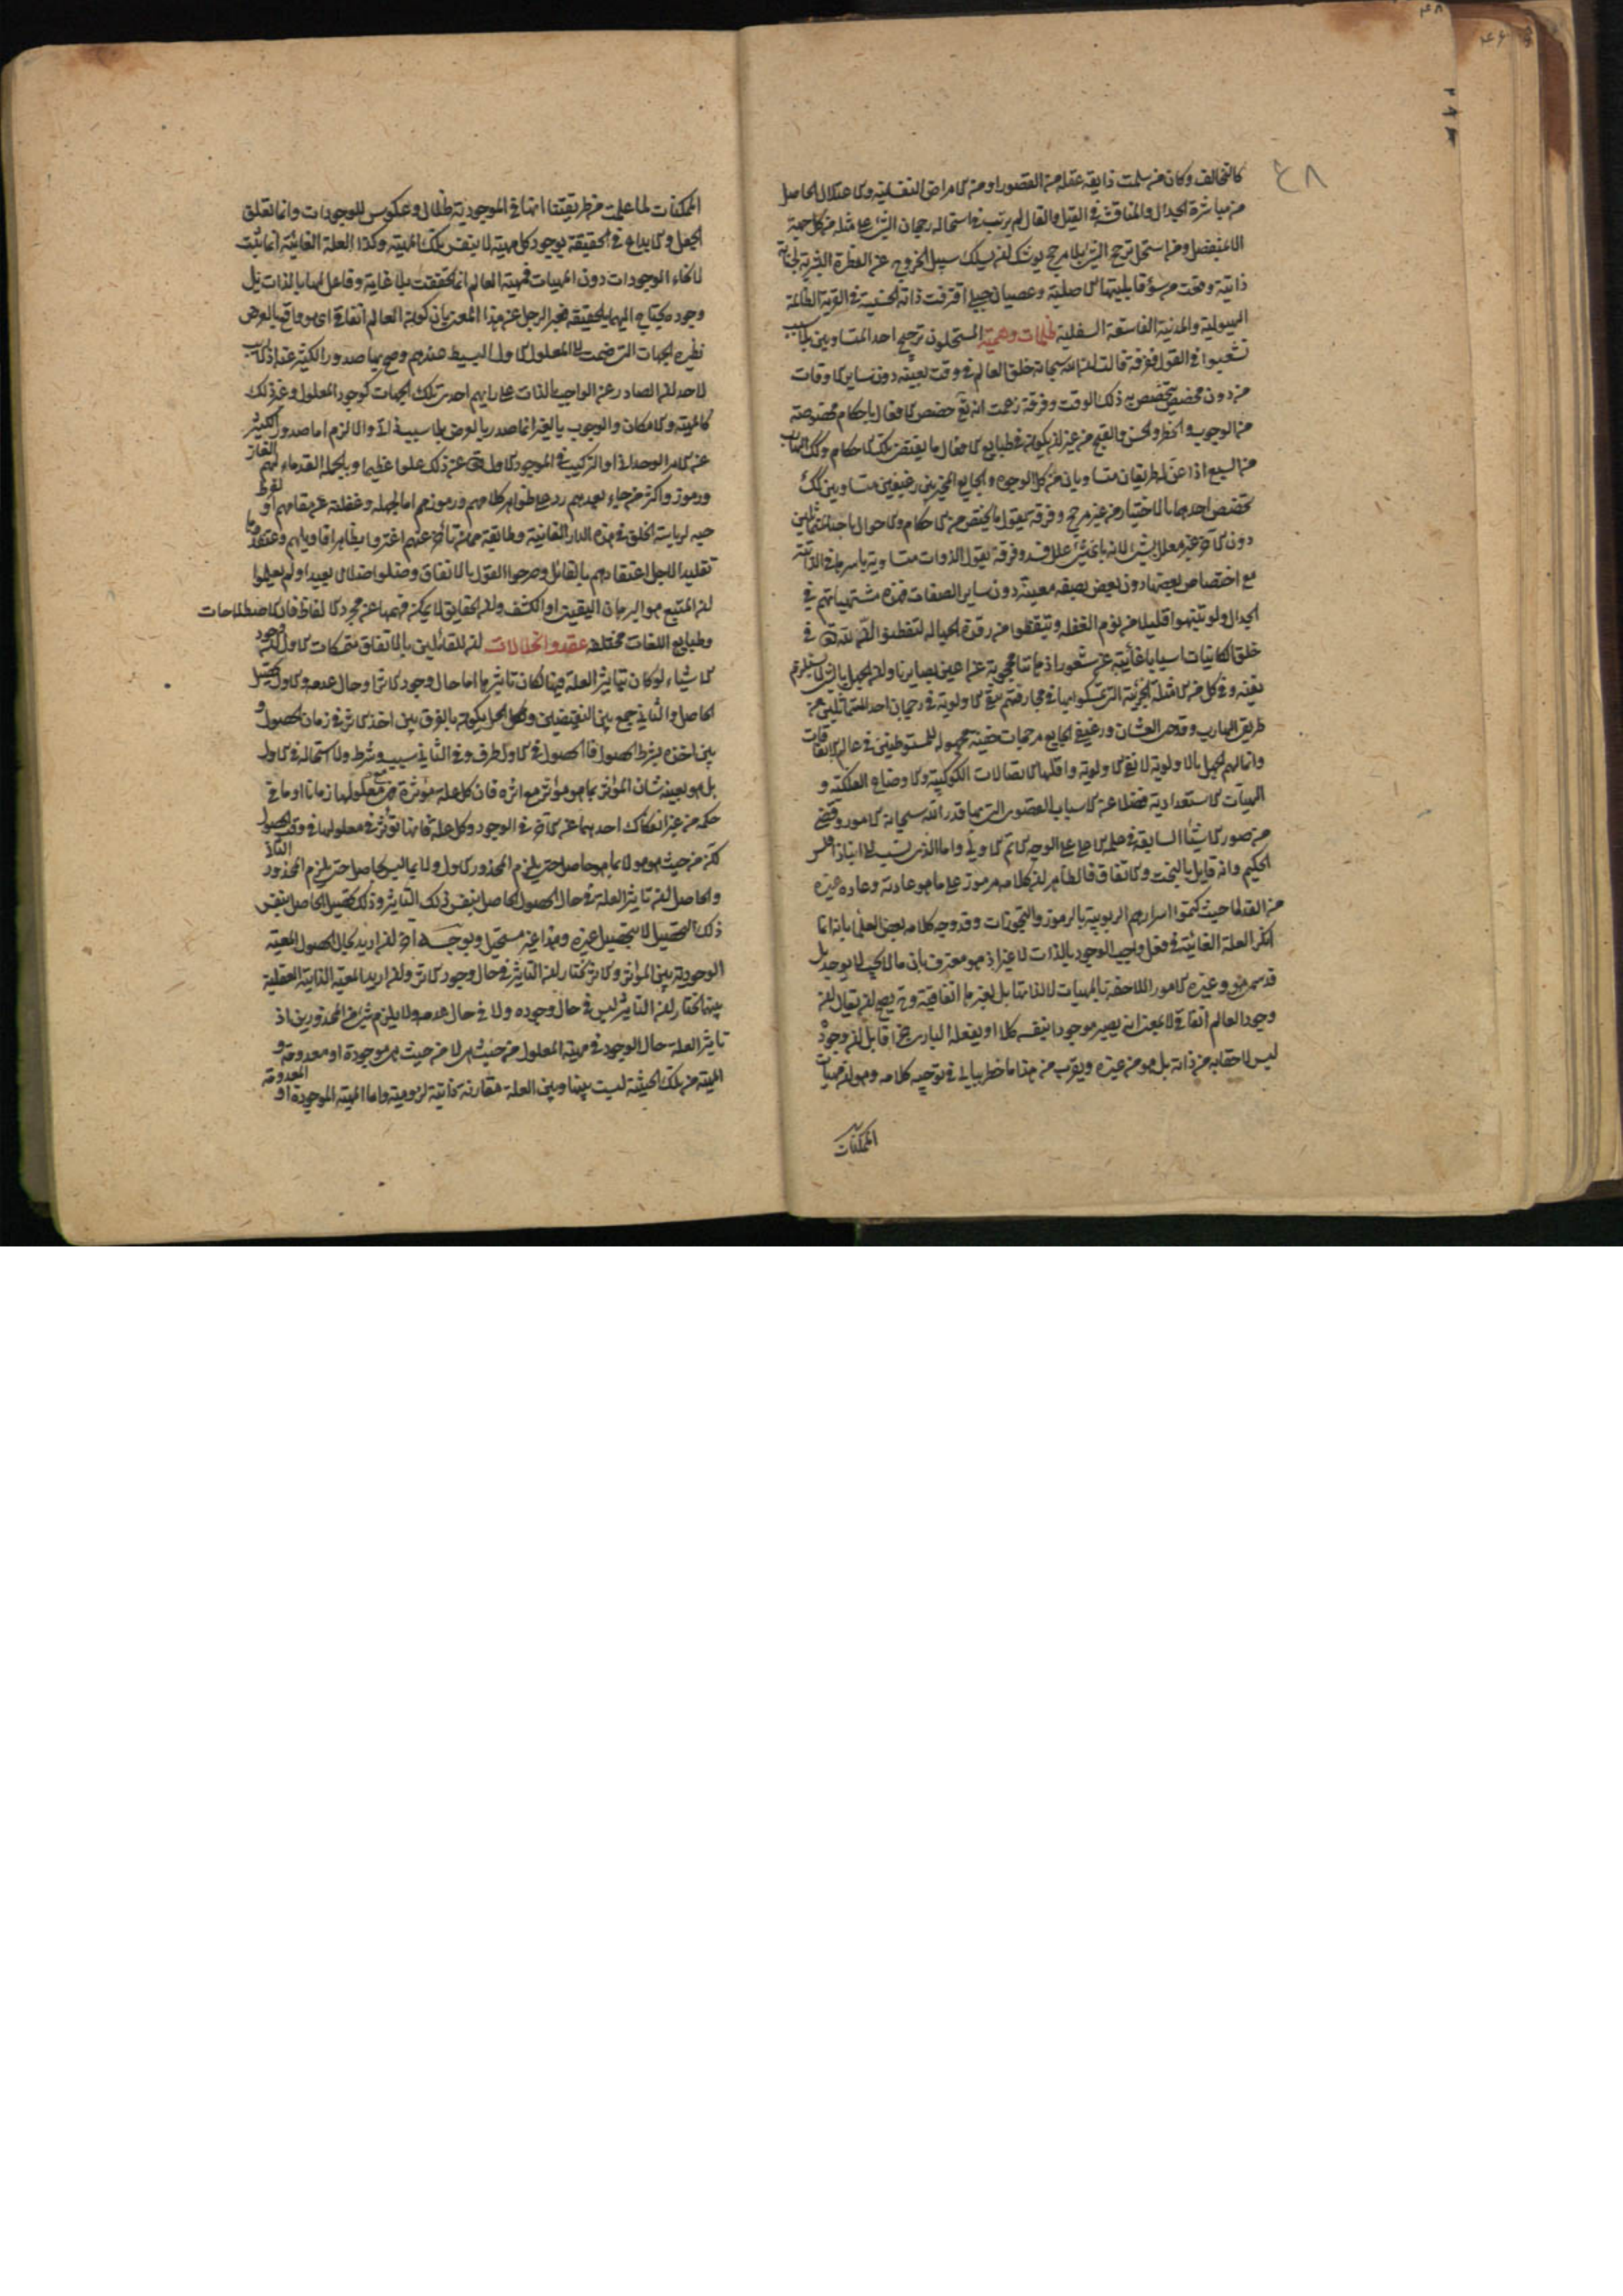 ٤٨
كالتخالف وكان من سلمت ذايقة عقله من القصور او من الامراض النفسانية والاعتلال الحاصل
من مباشرة الجدال والمناقشة في القيل والقال لم يرتب في استحالة رجحان الشئ على مثله من كل جهة
الا لمنفصل ومن استحل ترجح الشئ بلا مرجح يوشك ان يسلك سبيل الخروج عن الفطرة البشرية لخباثة
ذاتية وقعت من سوء قابليتها الاصلية وعصيان جبلي اقترفت ذاته الخبيثة في القرية الظالمة
الهيولية والمدنية الفاسقة السفلية ظلمات وهمية المستحلون ترجيح احد المتساويين بلا سبب
تشعبوا في القول ففرقة قالت ان الله سبحانه خلق العالم في وقت بعينه دون ساير الاوقات
من دون مخصص يتخصص به ذلك الوقت وفرقة زعمت انه تع خصص الافعال باحكام مخصوصة
من الوجوب والحظر والحسن والقبح من غير ان يكون في طبايع الافعال ما يقتضى تلك الاحكام وكذلك الهارب
من السبع اذا عن له طريقان متساويان من كل الوجوه والجايع المخير بين رغيفين متساويين كك
يخصص احدهما بالاختيار من غير مرجح وفرقة تقول ما يختص من الاحكام والاحوال باحد المتماثلين
دون الآخر غير معلل بشئ لانه باى شئ علل فسد وفرقة تقول الذوات متساوية باسرها في الذاتية
مع اختصاص بعضها دون بعض بصفة معينة دون ساير الصفات فهذه متشبثاتهم في
الجدال ولو تنبهوا قليلا من نوم الغفلة وتيقظوا من رقدة الجهالة لتفطنوا ان لله في
خلق الكاينات اسبابا غائبة عن شعور اذهاننا محجوبة عن اعين بصايرنا والجهل بالشئ لا يستلزم
نفيه وفي كل من الامثلة الجزئية التى تمسكوا بها في مجازفتهم بنفى الاولوية في رجحان احد المتماثلين من
طريق الهارب وقدحى العطشان ورغيفى الجايع مرجحات خفية مجهولة للمستوطنين في عالم الاتفاقات
وانما لهم الجهل بالاولوية لا نفى الاولوية واقلها الاتصالات الكوكبية والاوضاع الفلكية و
الهيآت الاستعدادية فضلا عن الاسباب القصوى التى بها قدر الله سبحانه الامور وقضى
من صور الاشياء السابقة في علمه الاعلى على الوجه الاتم الاولى واما الذى نسب الى انباذقلس
الحكيم وانه قايل بالبخت والاتفاق فالظاهر ان كلامه مرموز على ما هو عادته وعادة غيره
من القدما حيث كتموا اسرارهم الربوبية بالرموز والتجوزات وقد وجه كلامه بعض العلماء بانه انما
انكر العلة الغائية في فعل واجب الوجود بالذات لا غير اذ هو معترف بان ما لا يجب لا يوجد بل
قد سمى هو وغيره الامور اللاحقة بالمهيات لا لذاتها بل لغيرها اتفاقية وح يصح ان يقال ان
وجود العالم اتفاقى لا بمعنى انه يصير موجودا بنفسه كلا او يفعله البارى جزافا بل ان وجوده
ليس لاحقا به من ذاته بل هو من غيره ويقرب من هذا ما خطر ببالى في توجيه كلامه وهو ان مهيات
الممكنات
الممكنات لما علمت من طريقتنا انها في الموجودية ظلال وعكوس للوجودات وانما تعلق
الجعل والابداع في الحقيقة بوجود كل مهية لا بنفس تلك المهية وكذا العلة الغائية انما يثبت
لانحاء الوجودات دون المهيات فمهية العالم انما تحققت بلا غاية وفاعل لها بالذات بل
وجوده يحتاج اليهما بالحقيقة فعبر الرجل عن هذا المعنى بان كون العالم اتفاقى اى هو واقع بالعرض
نظيره الجهات التى ضمت الى المعلول الاول البسيط عندهم وصح بها صدور الكثير عنه اذ لا ريب
لاحد ان الصادر عن الواجب بالذات على رايهم احدى تلك الجهات كوجود المعلول وغير ذلك
كالمهية والامكان والوجوب بالغير انما صدر بالعرض بلا سبب ذاتى والا لزم اما صدور الكثير
عن الامر الوحدانى او التركيب في الموجود الاول تع عن ذلك علوا عظيما وبالجملة القدماء لهم الغاز
ورموز واكثر من جاء بعدهم رد على ظواهر كلامهم ورموزهم اما لجهله وغفلته عن مقامهم او لفرط
حبه لرياسة الخلق في هذه الدار الفانية وطائفة ممن تأخر عنهم اغتروا بظاهر اقاويلهم واعتقدوها
تقليدا لاجل اعتقادهم بالقائل وصرحوا القول بالاتفاق وضلوا ضلالا بعيدا ولم يعلموا
ان المتبع هو البرهان اليقينى او الكشف وان الحقايق لا يمكن فهمها عن مجرد الالفاظ فان الاصطلاحات
وطبايع اللغات مختلفة عقد وانحلالات ان للقائلين بالاتفاق متمسكات الاول ان وجود
الاشياء لو كان بتاثير العلة فيها لكان تاثيرها اما حال وجود الاثر او حال عدمه والاول تحصيل
الحاصل والثانى جمع بين النقيضين وحل الحل يكون بالفرق بين اخذ الاثر في زمان الحصول و
بين اخذه بشرط الحصول فالحصول في الاول ظرف وفي الثانى سبب وشرط ولا استحالة في الاول
بل هو بعينه شان المؤثر بما هو مؤثر مع اثره فان كل علة مؤثرة فهى مع معلولها زمانا او ما في
حكمه من غير انفكاك احدهما عن الآخر في الوجود وكل علة فانها تؤثر في معلولها في وقت الحصول
لكن من حيث هو هو لا بما هو حاصل حتى يلزم المحذور الاول ولا بما ليس بحاصل حتى يلزم المحذور الثانى
والحاصل ان تاثير العلة في حال الحصول الحاصل بنفس ذلك التاثير وذلك تحصيل الحاصل بنفس
ذلك التحصيل لا بتحصيل غيره وهذا غير مستحيل وبوجه آخر ان اريد بحال الحصول المعية
الوجودية بين المؤثر والاثر نختار ان التاثير في حال وجود الاثر وان اريد المعية الذاتية العقلية
بينهما نختار ان التاثير ليس في حال وجوده ولا في حال عدمه ولا يلزم شئ من المحذورين اذ
تاثير العلة حال الوجود في مهية المعلول من حيث هى لا من حيث هى موجودة او معدومة و
المهية من تلك الحيثية ليست بينها وبين العلة مقارنة ذاتية لزومية واما المهية الموجودة او المعدومة